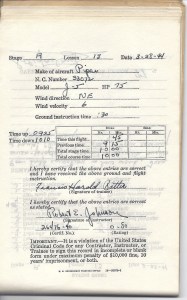 Stage A Lesson 13 Date 3-23-44
Make of aircraft Piper
N. C. Number
Model J-5 HP 75
Wind direction NE
Wind velocity 6
Ground instruction time :30
Time up 0925
Time down 1010
Dual Solo
Hr. Min. Hr. Min.
This flight :45
Previous time 9 15
Total stage time 10 00
Total course time 10 00
I hereby certify that the above entries are correct
and I have received the above ground and flight
instruction.
Francis Harold Ritter
(Signature of trainee)
I hereby certify that the above entries are correct
as stated.
Robert E. Johnson
(Signature of instructor)
(Certif. No.) (Rating)
IMPORTANT.—It is a violation of the United States
Criminal Code for any Contractor, Instructor, or
Trainee to sign this record in incomplete or blank
form under maximum penalty of $10,000 fine, 10
years' imprisonment, or both.